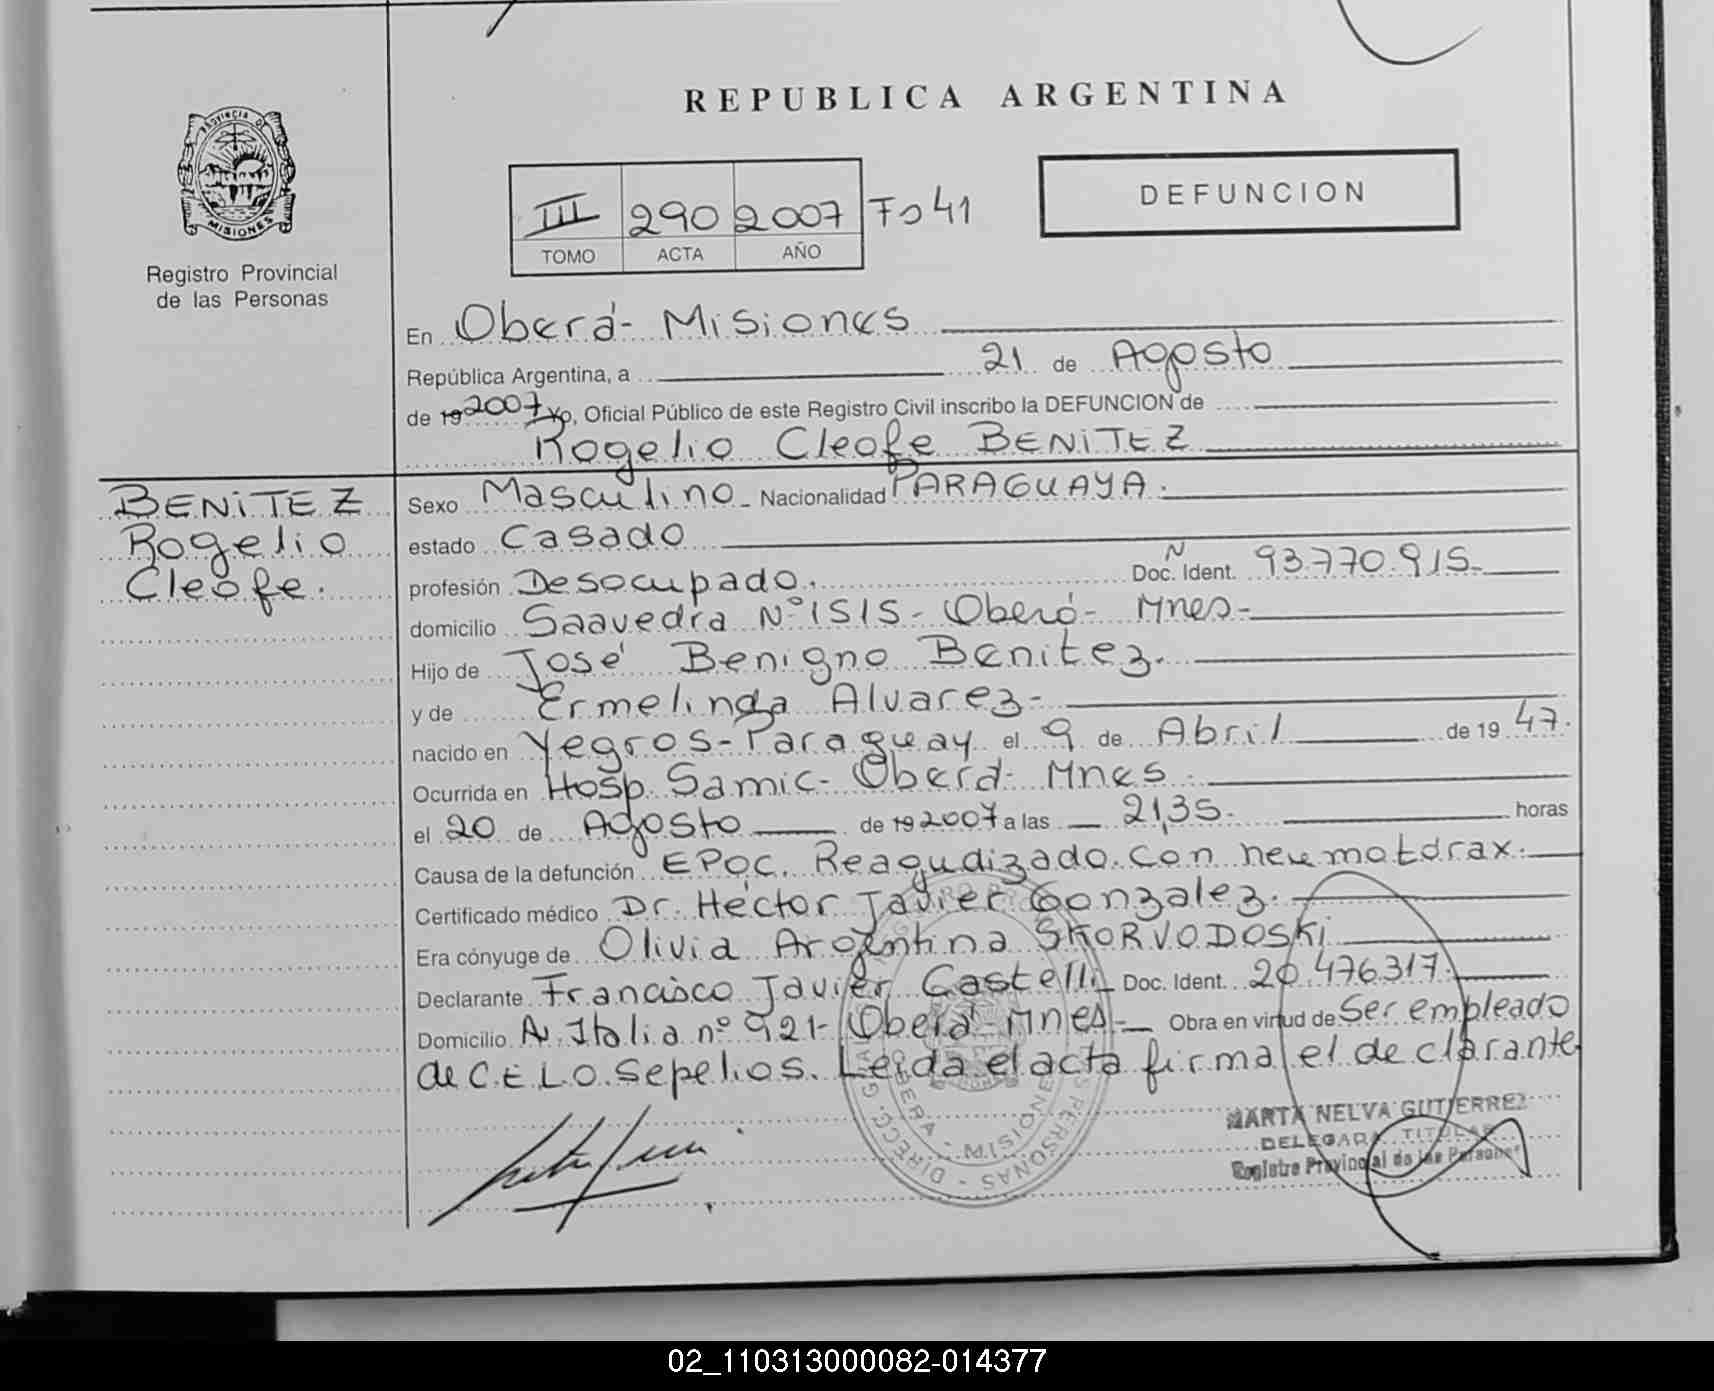 REPUBLICA ARGENTINA
PROVINCIA DE
MISIONES
Registro Provincial
de las Personas
III 290 2007 Fo 41
TOMO ACTA AÑO
DEFUNCION
En Oberá - Misiones
República Argentina, a 21 de Agosto
de 19 2007 Yo, Oficial Público de este Registro Civil inscribo la DEFUNCION de
Rogelio Cleofe BENITEZ
BENITEZ
Rogelio
Cleofe.
Sexo Masculino - Nacionalidad PARAGUAYA.
estado Casado
profesión Desocupado. N Doc. Ident. 93.770.915.
domicilio Saavedra Nº 1515 - Oberá - Mnes -
Hijo de José Benigno Benitez.
y de Ermelinda Alvarez -
nacido en Yegros - Paraguay el 9 de Abril de 19 47.
Ocurrida en Hosp. Samic - Oberá - Mnes.
el 20 de Agosto de 19 2007 a las 21,35. horas
Causa de la defunción EPOC. Reagudizado. con neumotórax.
Certificado médico Dr. Héctor Javier Gonzalez.
Era cónyuge de Olivia Argentina SKORVODOSKI
Declarante Francisco Javier Castelli Doc. Ident. 20.476.317.
Domicilio Av. Italia nº 921 - Oberá - Mnes - Obra en virtud de Ser empleado
de C.E.L.O. Sepelios. Leida el acta firma el declarante
MARTA NELVA GUTIERREZ
DELEGADA TITULAR
Registro Provincial de las Personas
OBERA - MISIONES
02_110313000082-014377